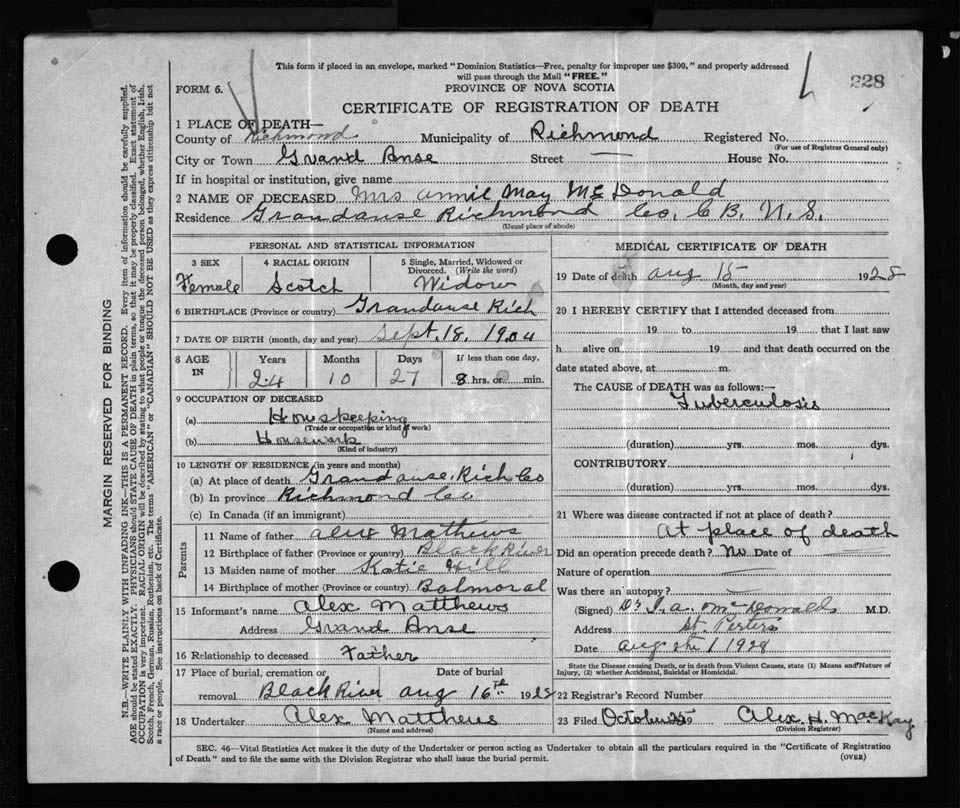 This form if placed in an envelope, marked "Dominion Statistics—Free, penalty for improper use $300," and properly addressed
will pass through the Mail "FREE."
FORM 6.
PROVINCE OF NOVA SCOTIA
228
CERTIFICATE OF REGISTRATION OF DEATH
1 PLACE OF DEATH—
County of Richmond Municipality of Richmond Registered No.
(For use of Registrar General only)
City or Town Grand Anse Street — House No.
If in hospital or institution, give name
2 NAME OF DECEASED Mrs Annie May McDonald
Residence Grandanse Richmond Co. C B. N. S.
(Usual place of abode)
PERSONAL AND STATISTICAL INFORMATION
3 SEX 4 RACIAL ORIGIN 5 Single, Married, Widowed or Divorced. (Write the word)
Female Scotch Widow
6 BIRTHPLACE (Province or country) Grandanse Rich
7 DATE OF BIRTH (month, day and year) Sept. 18, 1904
8 AGE IN Years Months Days If less than one day,
24 10 27 8 hrs. or min.
9 OCCUPATION OF DECEASED
(a) Houskeeping
(Trade or occupation or kind of work)
(b) Housework
(Kind of industry)
10 LENGTH OF RESIDENCE (in years and months)
(a) At place of death Grandanse, Rich Co
(b) In province Richmond Co
(c) In Canada (if an immigrant)
Parents
11 Name of father Alex Mathews
12 Birthplace of father (Province or country) Black River
13 Maiden name of mother Katie Hill
14 Birthplace of mother (Province or country) Balmoral
15 Informant's name Alex Matthews
Address Grand Anse
16 Relationship to deceased Father
17 Place of burial, cremation or Date of burial
removal Black River Aug 16th 1928
18 Undertaker Alex Matthews
(Name and address)
MEDICAL CERTIFICATE OF DEATH
19 Date of death Aug 15 1928
(Month, day and year)
20 I HEREBY CERTIFY that I attended deceased from
19 to 19 that I last saw
h alive on 19 and that death occurred on the
date stated above, at m.
The CAUSE of DEATH was as follows:—
Tuberculosis
(duration) yrs. mos. dys.
CONTRIBUTORY
(duration) yrs. mos. dys.
21 Where was disease contracted if not at place of death?
At place of death
Did an operation precede death? No. Date of —
Nature of operation —
Was there an autopsy? —
(Signed) Dr McDonald M.D.
Address St. Peters
Date Aug 1928
State the Disease causing Death, or in death from Violent Causes, state (1) Means and Nature of
Injury, (2) whether Accidental, Suicidal or Homicidal.
22 Registrar's Record Number
23 Filed October 19 Alex. H. MacKay
(Division Registrar)
SEC. 46—Vital Statistics Act makes it the duty of the Undertaker or person acting as Undertaker to obtain all the particulars required in the "Certificate of Registration
of Death" and to file the same with the Division Registrar who shall issue the burial permit.
(OVER)
MARGIN RESERVED FOR BINDING
N.B.—WRITE PLAINLY WITH UNFADING INK—THIS IS A PERMANENT RECORD. Every item of information should be carefully supplied.
AGE should be stated EXACTLY. PHYSICIANS should STATE CAUSE OF DEATH in plain terms, so that it may be properly classified. Exact statement of
OCCUPATION is very important. RACIAL ORIGIN will be described by stating to what people or tongue the deceased person belonged, whether English, Irish,
Scotch, French, German, Russian, Ruthenian, etc. The terms "AMERICAN" or "CANADIAN" SHOULD NOT BE USED as they express citizenship but not
a race or people. See instructions on back of Certificate.